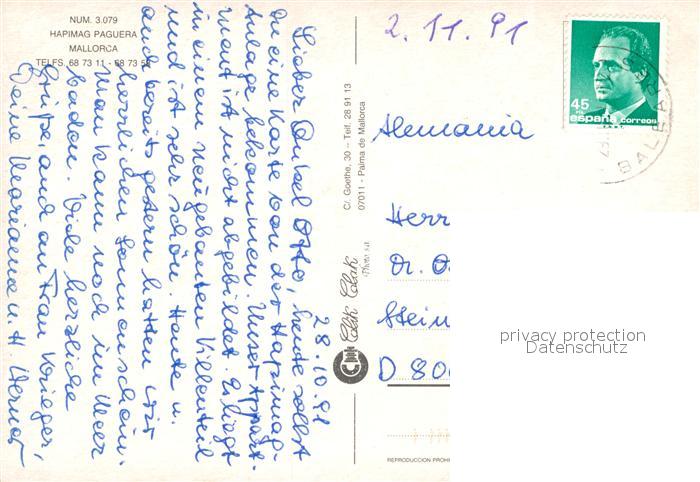 NUM. 3.079
HAPIMAG PAGUERA
MALLORCA
TELFS. 68 73 11 - 68 73 58
28.10.91
Lieber Onkel Otto, heute sollst
Du eine Karte von der Hapimag-
Anlage bekommen. Unser Appart-
ment ist nicht abgebildet. Es liegt
in einem neugebauten Villenteil
und ist sehr schön. Heute u.
auch bereits gestern hatten wir
herrlichen Sonnenschein.
Man kann noch im Meer
baden. Viele herzliche
Grüße, auch an Frau Krieger,
Deine Marianne u. H Werner
Clik Clak
Photo s.a.
C/. Goethe, 30 – Telf. 28 91 13
07011 - Palma de Mallorca
2.11.91
45
PTA
españa correos
F.N.M.T.
BALEARES
Alemania
Herr
Dr. O
Stein
D 800
privacy protection
Datenschutz
REPRODUCCION PROHI